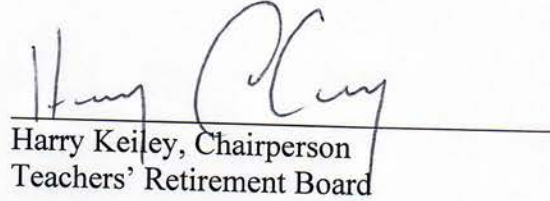 Harry Keiley, Chairperson
Teachers' Retirement Board